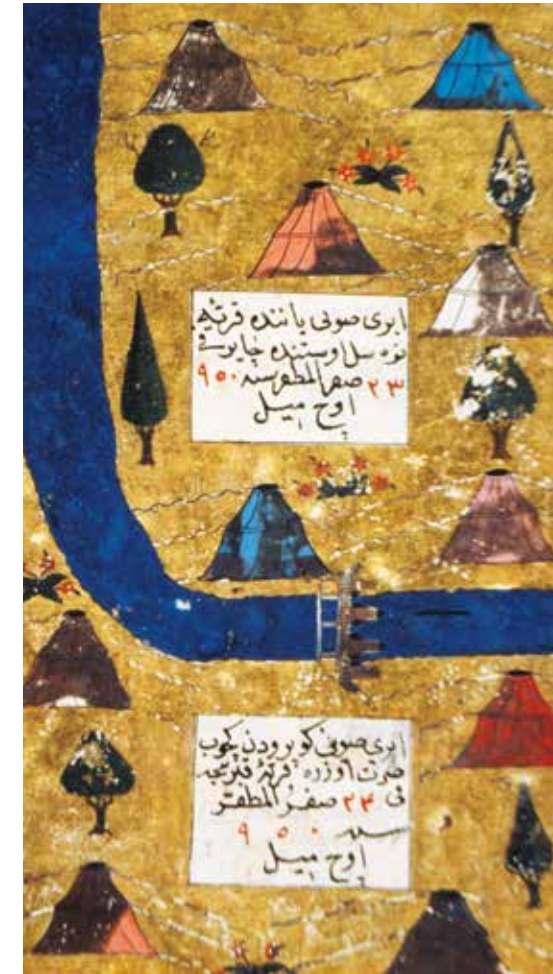 ایری صوئی یاننده قریهٔ
اوستنده چایر فی
٢٣ صفر المظفر سنه ٩٥٠
اوچ میل
ایری صوئی کوپرودن کچوب
صرت اوزره قریهٔ
فی ٢٤ صفر المظفر
سنه ٩٥٠
اوچ میل